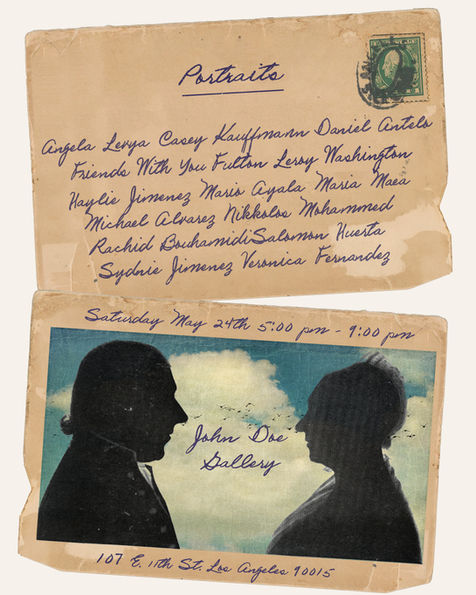 Portraits
Angela Leroya Casey Kauffmann Daniel Antelo
Friends With You Fulton Leroy Washington
Haylie Jimenez Mario Ayala Maria Maea
Michael Alvarez Nikkolos Mohammed
Rachid Bouhamidi Salomon Huerta
Sydnie Jimenez Veronica Fernandez
Saturday May 24th 5:00 pm - 9:00 pm
John Doe
Gallery
107 E. 11th St. Los Angeles 90015